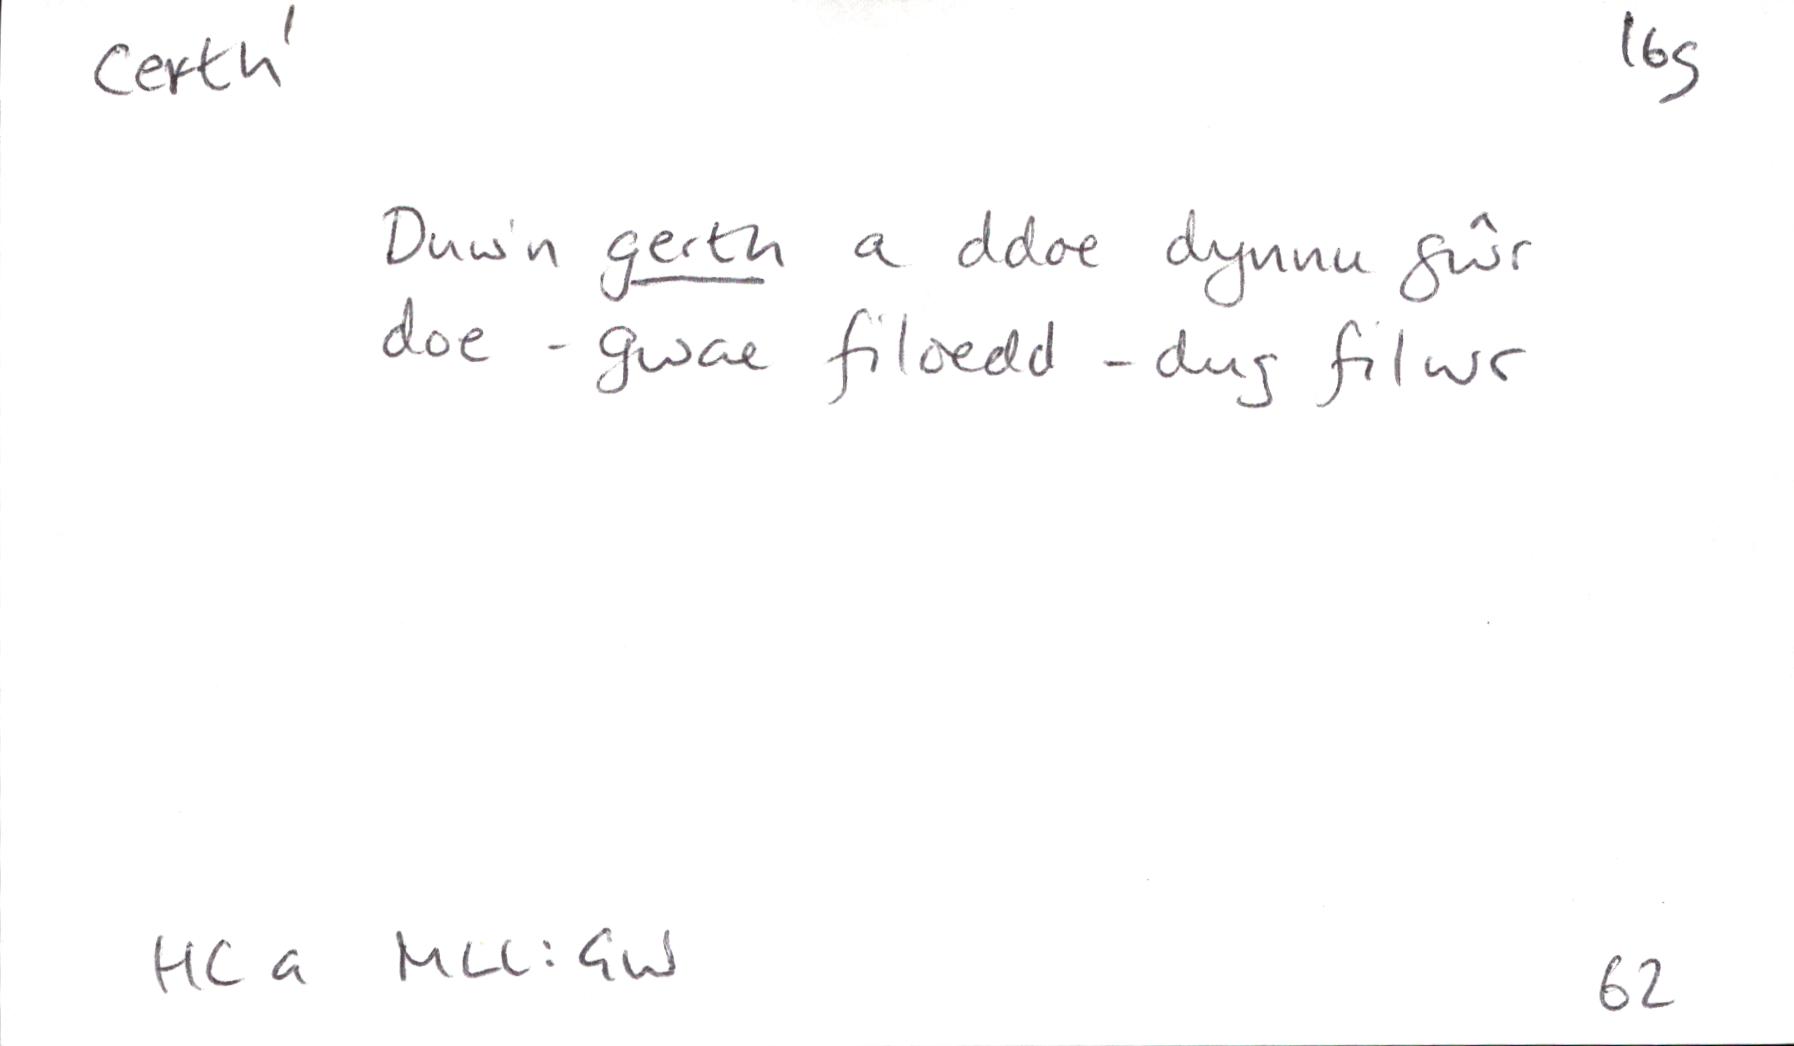 certh¹ 16g
Duw'n gerth a ddoe dynnu gŵr
doe - gwae filoedd - dug filwr
HC a MLl: GW 62